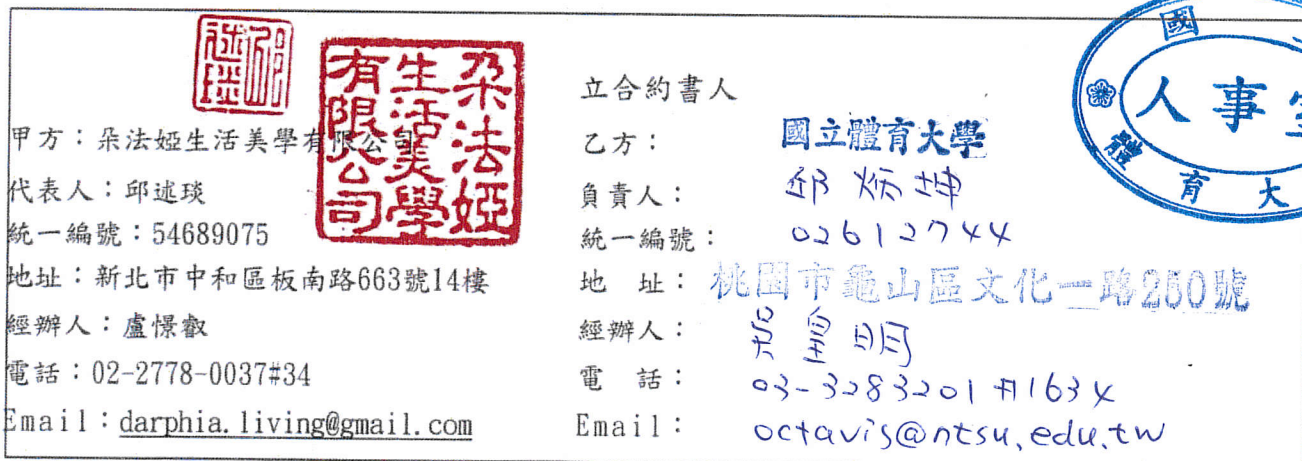 甲方：朵法婭生活美學有限公司
代表人：邱述琰
統一編號：54689075
地址：新北市中和區板南路663號14樓
經辦人：盧憬叡
電話：02-2778-0037#34
Email：darphia.living@gmail.com
朵法婭生活美學有限公司
立合約書人
乙方：國立體育大學
負責人：邱炳坤
統一編號：02612744
地 址：桃園市龜山區文化一路250號
經辦人：吳皇明
電 話：03-3283201#1634
Email：octavis@ntsu.edu.tw
國
人事室
體育大